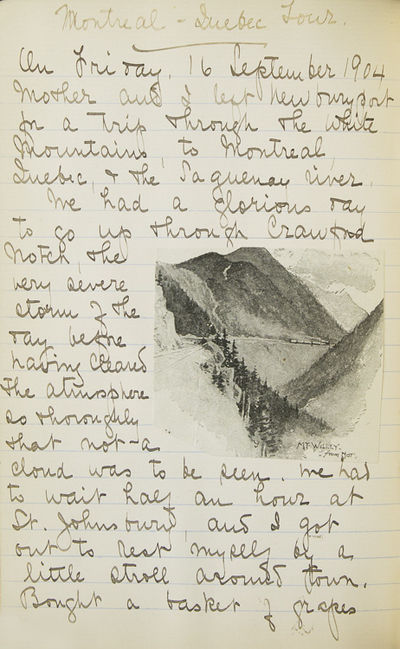 Montreal - Quebec Tour.
On Friday, 16 September 1904
Mother and I left Newburyport
for a trip through the White
Mountains, to Montreal,
Quebec, & the Saguenay river.
We had a glorious day
to go up through Crawford
Notch, the
very severe
storm of the
day before
having cleared
the atmosphere
so thoroughly
that not a
cloud was to be seen. We had
to wait half an hour at
St. Johnsbury, and I got
out to rest myself by a
little stroll around town.
Bought a basket of grapes
MT. WILLEY.